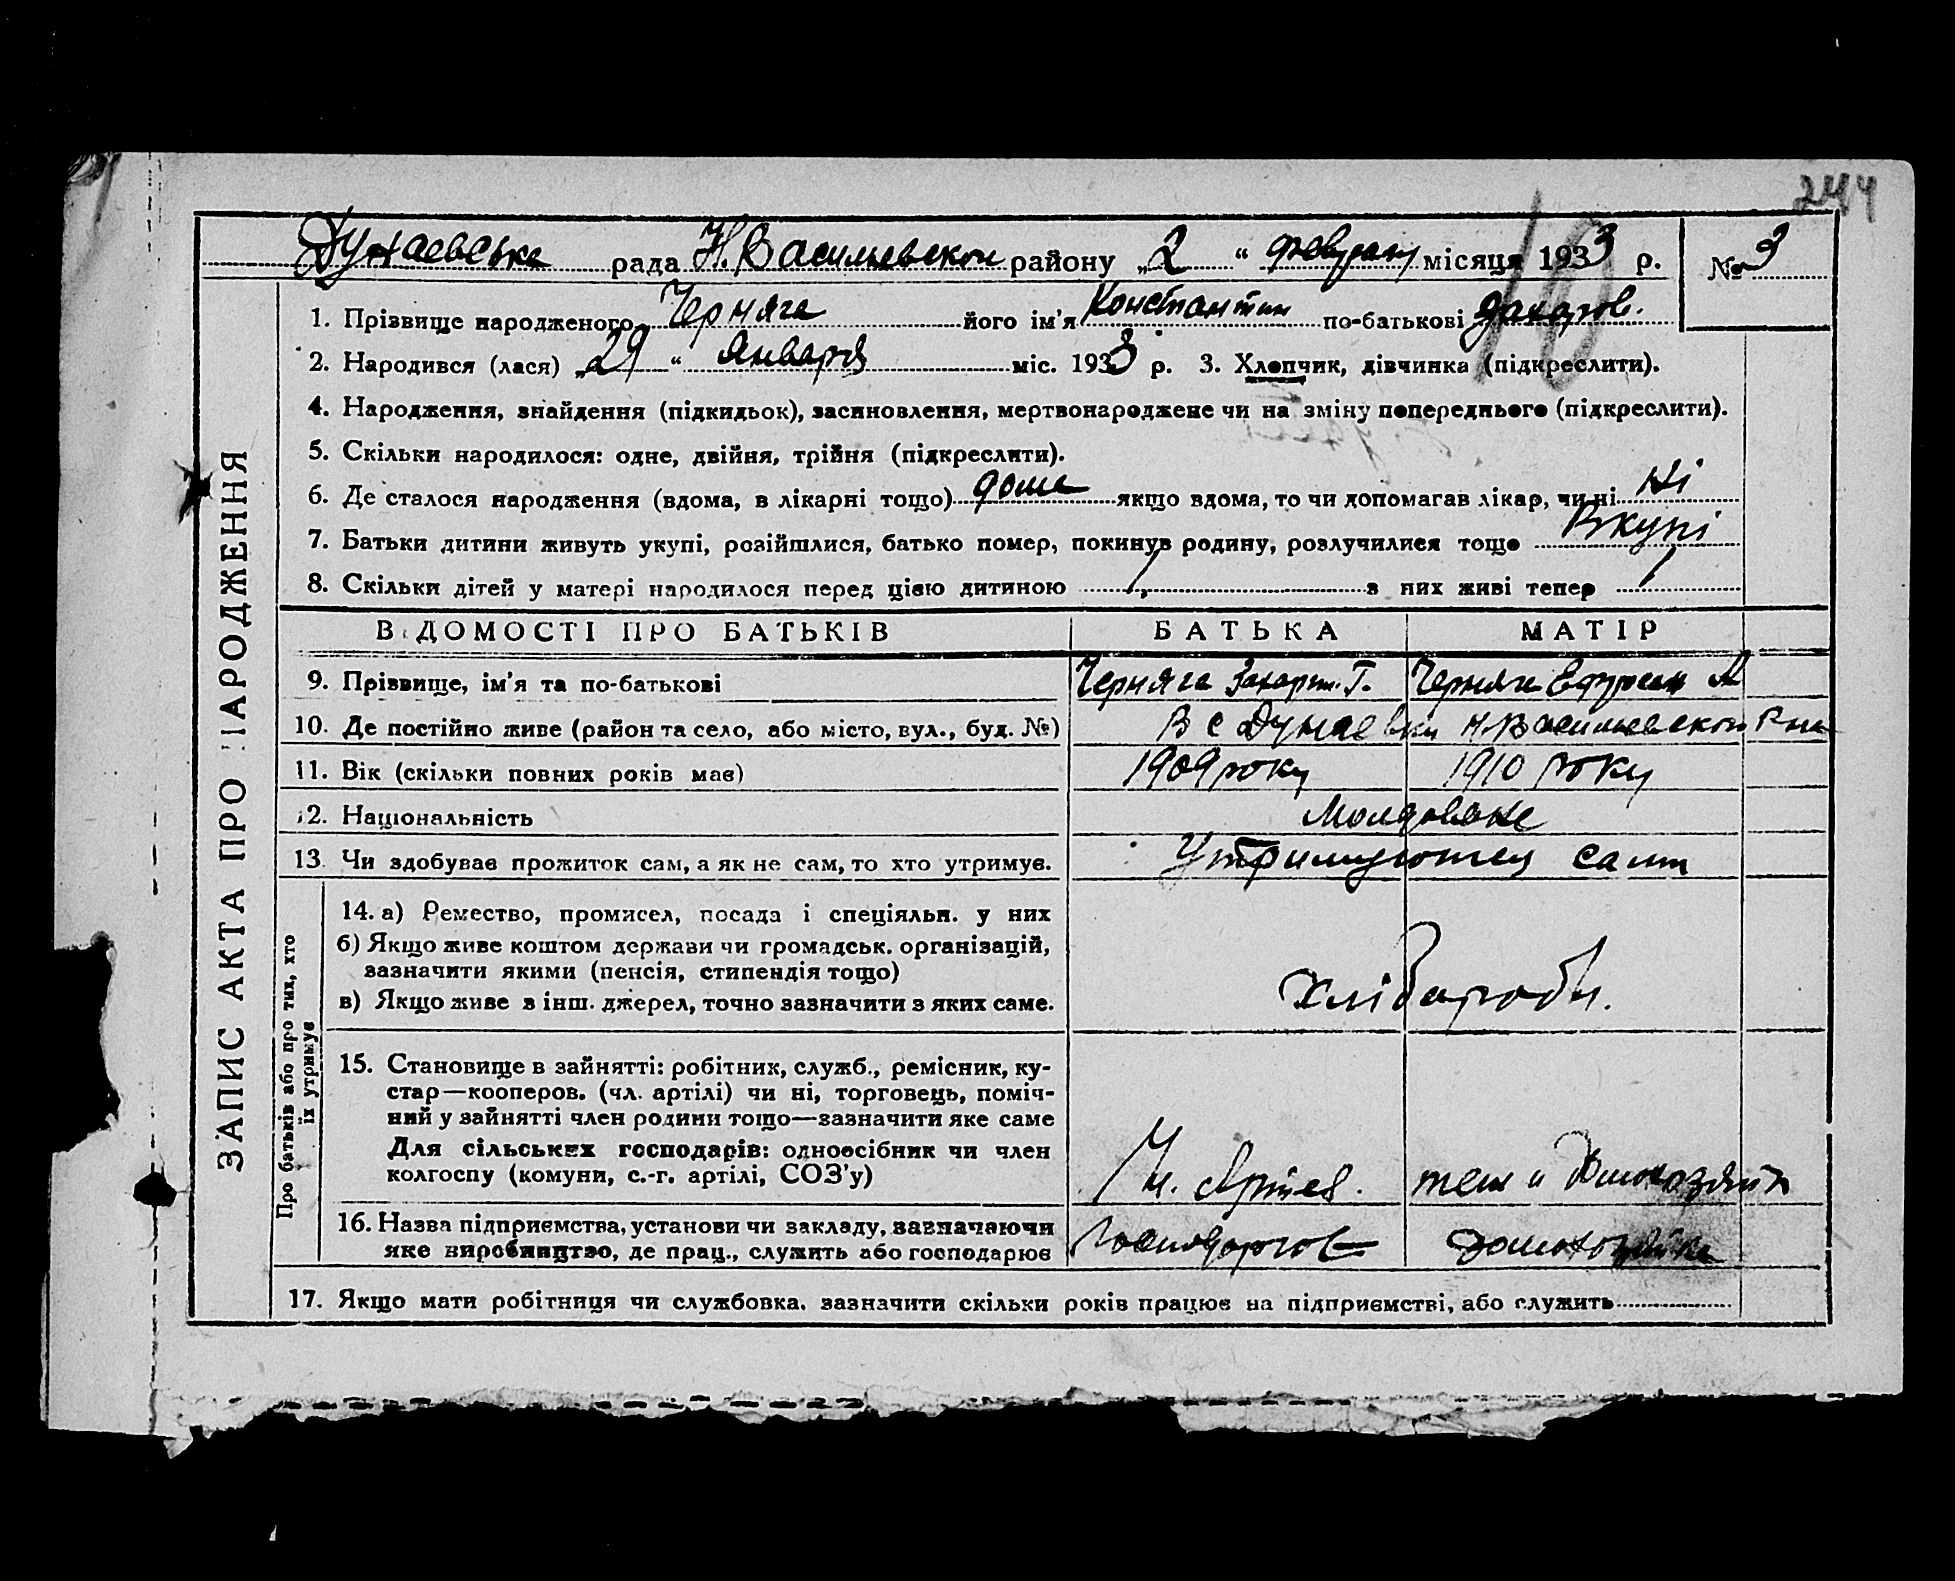 244
Дунаевська рада Н. Васильевскои району „2“ февраля місяця 1933 р. № 3
1. Прізвище народженого Черняга його ім'я Константин по-батькові Захаров.
2. Народився (лася) „29“ Января міс. 1933 р. 3. Хлопчик, дівчинка (підкреслити).
10
4. Народження, знайдення (підкидьок), засиновлення, мертвонароджене чи на зміну попереднього (підкреслити).
5. Скільки народилося: одне, двійня, трійня (підкреслити).
6. Де сталося народження (вдома, в лікарні тощо) дома якщо вдома, то чи допомагав лікар, чи ні Ні
7. Батьки дитини живуть укупі, розійшлися, батько помер, покинув родину, розлучилися тощо Вкупі
8. Скільки дітей у матері народилося перед цією дитиною 1 з них живі тепер 1
ЗАПИС АКТА ПРО НАРОДЖЕННЯ
ВІДОМОСТІ ПРО БАТЬКІВ БАТЬКА МАТІР
9. Прізвище, ім'я та по-батькові Черняга Захар Г. Черняга А
10. Де постійно живе (район та село, або місто, вул., буд. №) В с Дунаевки Н. Васильевскои Р на
11. Вік (скільки повних років має) 1909 року 1910 року
12. Національність Молдоване
13. Чи здобуває прожиток сам, а як не сам, то хто утримує. Утримуются сами
Про батьків або про тих, хто
їх утримує
14. а) Ремество, промисел, посада і спеціяльн. у них
б) Якщо живе коштом держави чи громадськ. організацій,
зазначити якими (пенсія, стипендія тощо)
в) Якщо живе з інш. джерел, точно зазначити з яких саме. Хлібароби.
15. Становище в зайнятті: робітник, служб., ремісник, ку-
стар—кооперов. (чл. артілі) чи ні, торговець, поміч-
ний у зайнятті член родини тощо—зазначити яке саме
Для сільських господарів: одноосібник чи член
колгоспу (комуни, с.-г. артілі, СОЗ'у) Ч. Артел.
16. Назва підприємства, установи чи закладу, зазначаючи
яке виробництво, де прац., служить або господарює домохозяйка
17. Якщо мати робітниця чи службовка, зазначити скільки років працює на підприємстві, або служить